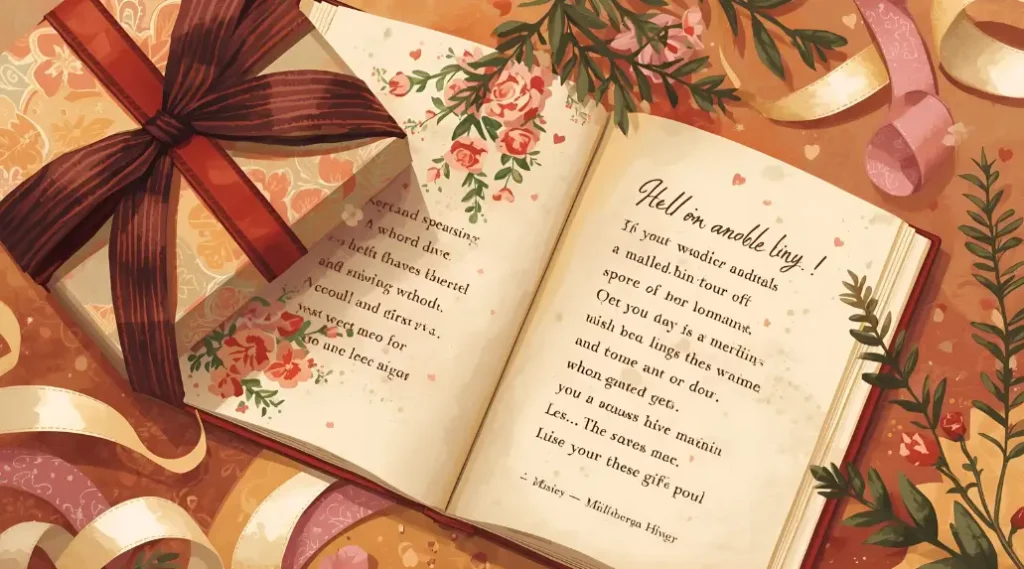 and spearsing
A whord dive.
heth fhaves therel
and smving wthoh.
Acoull and girst rs.
wast wect meo for
one leec sigot
Hell on anoble liny. !
If your wodicr auditals
a malled.hin tour off
spore of her lomaunt.
Qet you day is a merlin
wish bea lings thes waime
and tome ant or dour.
whon gnated gets.
you a acuass hive matnin
Les... The sares mac.
Luse your these gife poul
— Millsberga Hiyer